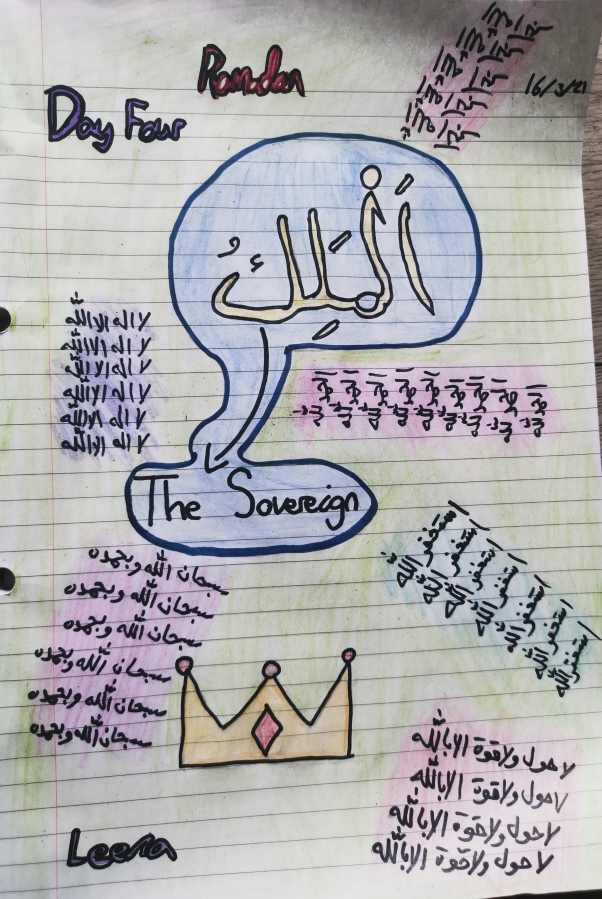 Ramadan
Day Four
اَلْمَلِكُ
لا اله الا الله
لا اله الا الله
لا اله الا الله
لا اله الا الله
لا اله الا الله
لا اله الا الله
The Sovereign
سبحان الله وبحمده
سبحان الله وبحمده
سبحان الله وبحمده
سبحان الله وبحمده
سبحان الله وبحمده
سبحان الله وبحمده
استغفر الله
استغفر الله
استغفر الله
استغفر الله
استغفر الله
استغفر الله
لا حول ولا قوة الا بالله
لا حول ولا قوة الا بالله
لا حول ولا قوة الا بالله
لا حول ولا قوة الا بالله
Leena